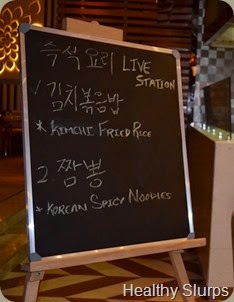 즉석 요리 LIVE
STATION
1. 김치볶음밥
* KIMCHI FRIED RICE
2. 짬뽕
* KOREAN SPICY NOODLES
Healthy Slurps